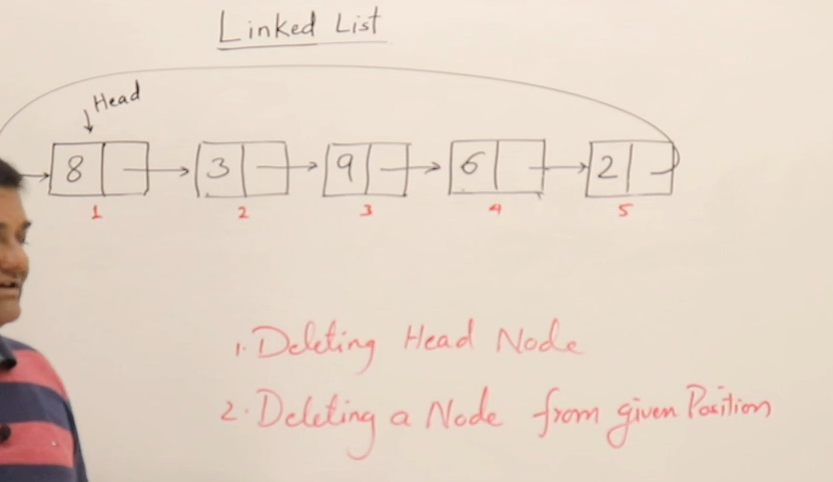 Linked List
Head
8 3 9 6 2
1 2 3 4 5
1. Deleting Head Node
2. Deleting a Node from given Position